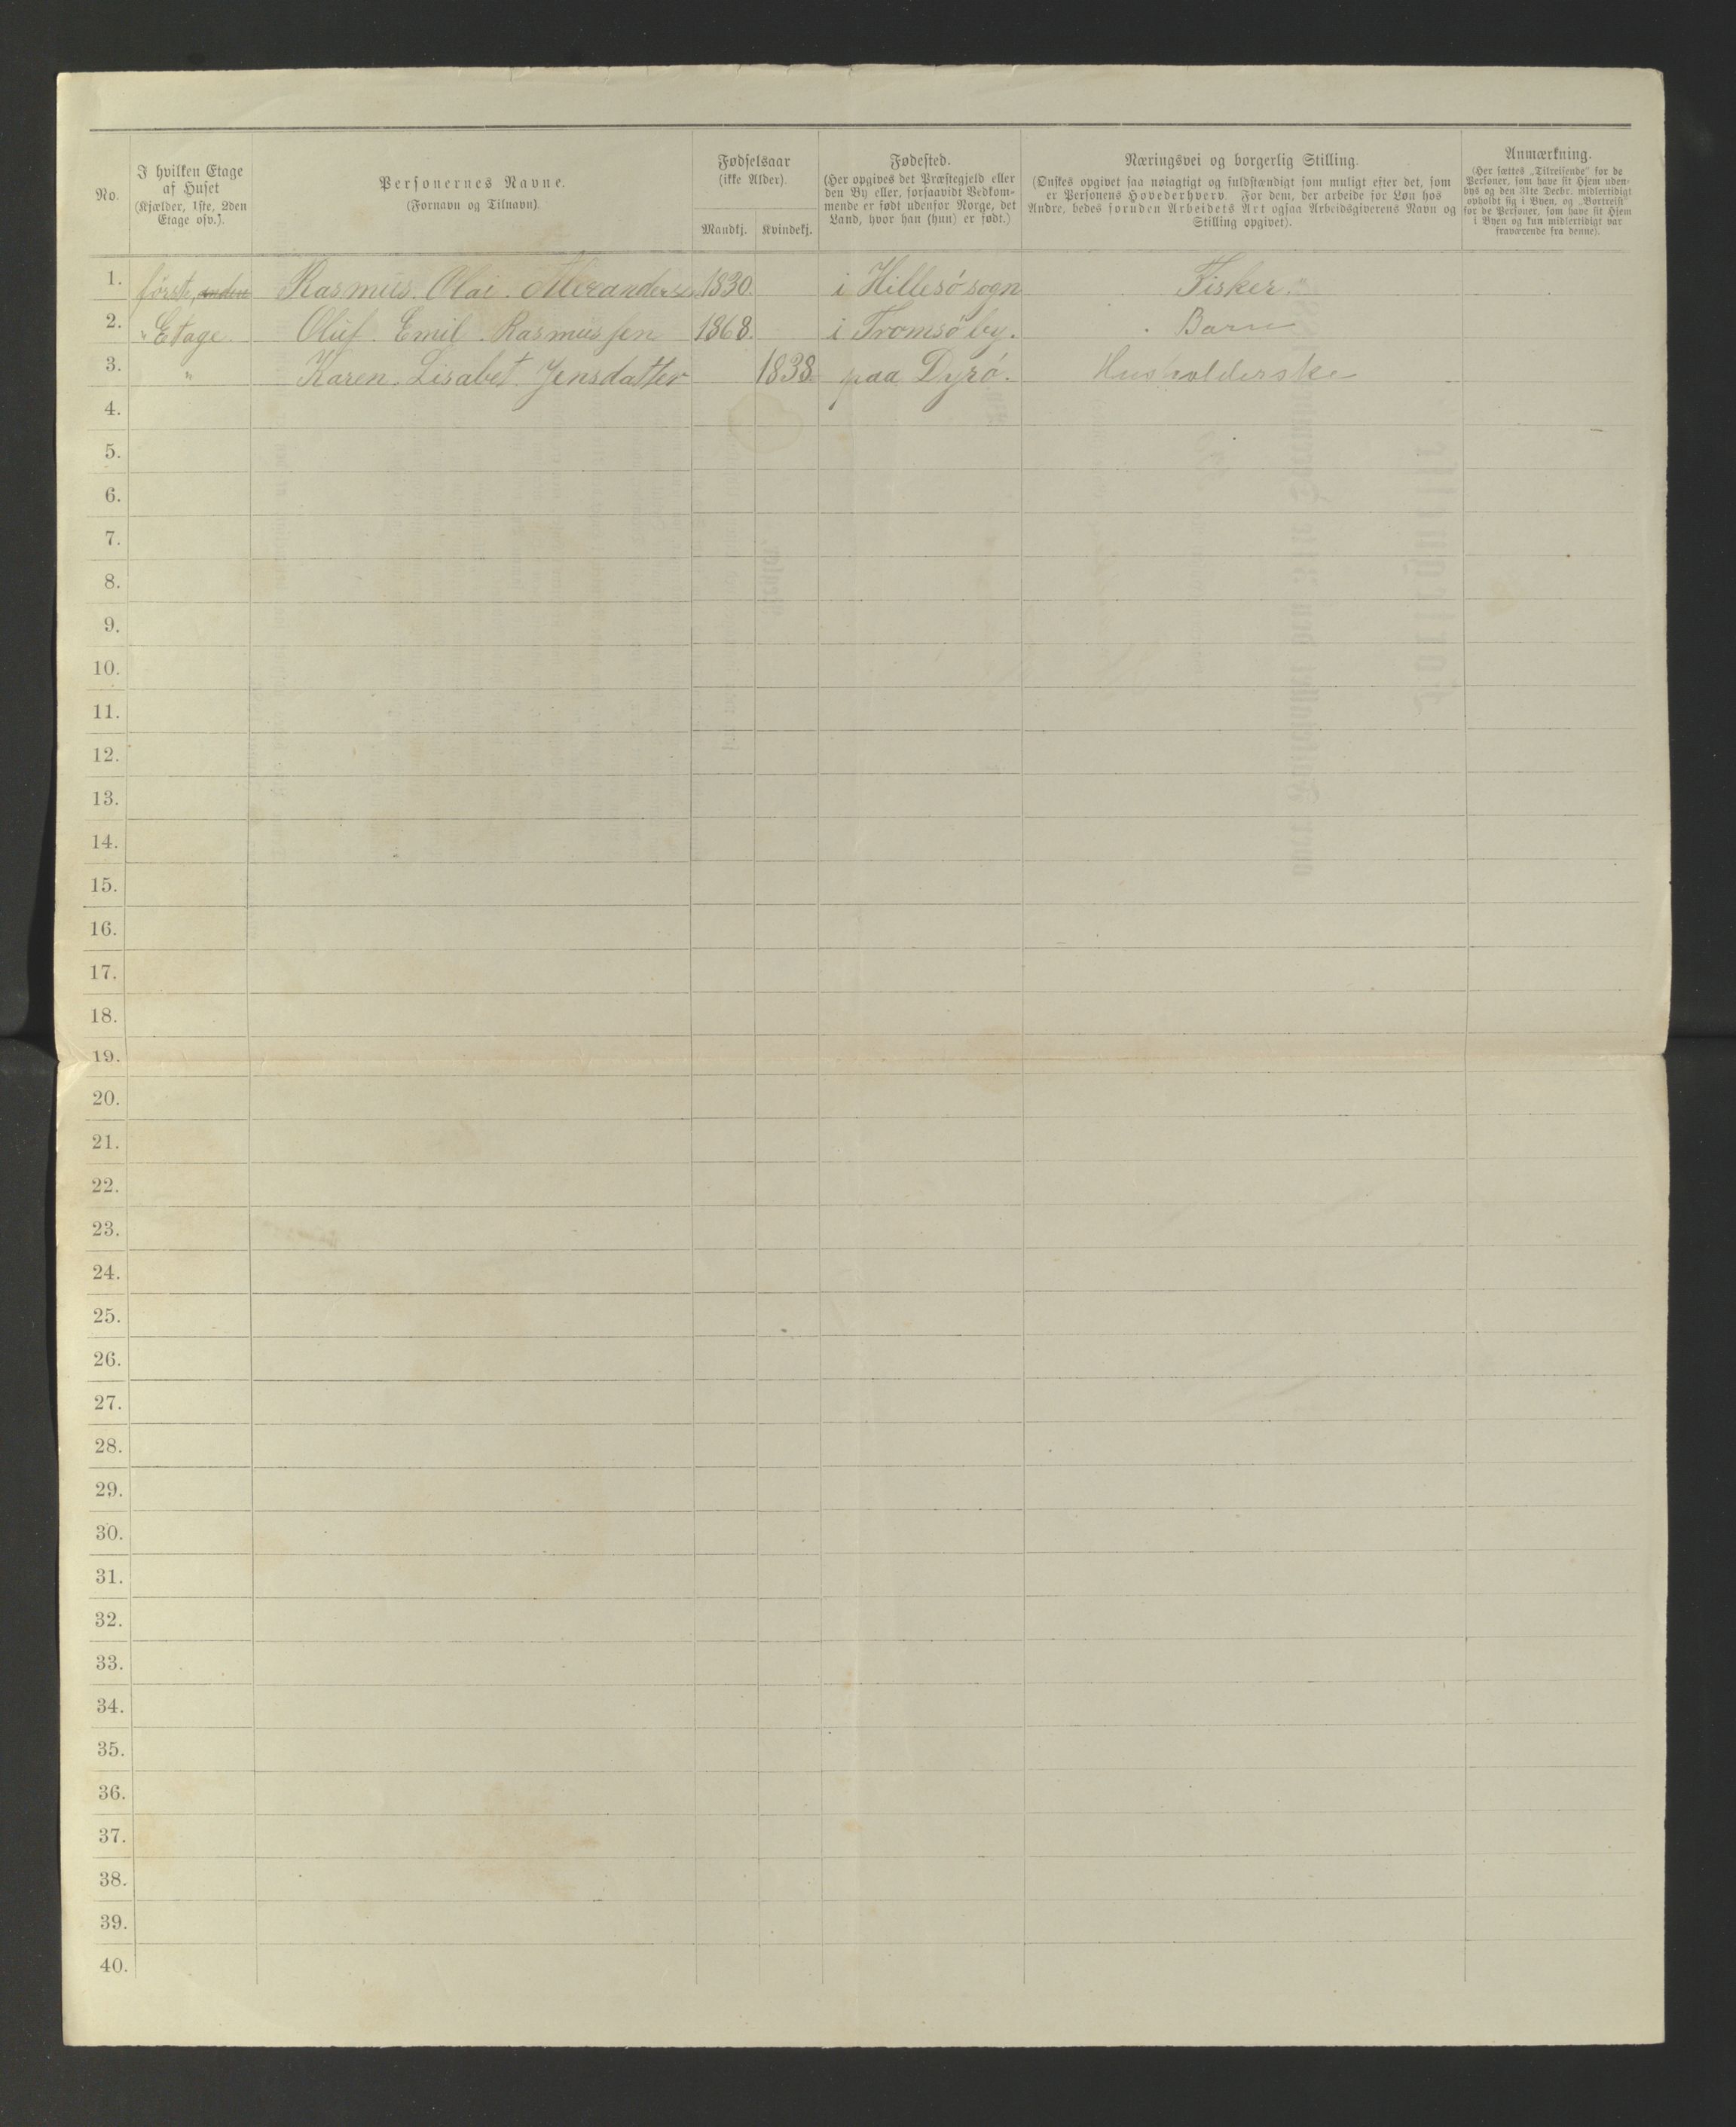 No.
I hvilken Etage
af Huset
(Kjælder, 1ste, 2den
Etage osv.).
Personernes Navne.
(Fornavn og Tilnavn)
Fødselsaar
(ikke Alder).
Mandkj.
Kvindekj.
Fødested.
(Her opgives det Præstegjeld eller
den By eller, forsaavidt Vedkom-
mende er født udenfor Norge, det
Land, hvor han (hun) er født.)
Næringsvei og borgerlig Stilling.
(Ønskes opgivet saa nøiagtigt og fuldstændigt som muligt efter det, som
er Personens Hovederhverv. For dem, der arbeide for Løn hos
Andre, bedes foruden Arbeidets Art ogsaa Arbeidsgiverens Navn og
Stilling opgivet).
Anmærkning.
(Her sættes „Tilreisende" for de
Personer, som have sit Hjem uden-
bys og den 31te Decbr. midlertidigt
opholdt sig i Byen, og „Bortreist"
for de Personer, som have sit Hjem
i Byen og kun midlertidigt var
fraværende fra denne).
1. første, anden Rasmus. Olai. Alexandersen 1830. i Hillesø sogn Fisker.
2. " Etage. Oluf. Emil. Rasmussen 1868. i Tromsø by. Barn
3. " Karen. Lisabet. Jensdatter 1838. paa Dyrø. Husholderske
4.
5.
6.
7.
8.
9.
10.
11.
12.
13.
14.
15.
16.
17.
18.
19.
20.
21.
22.
23.
24.
25.
26.
27.
28.
29.
30.
31.
32.
33.
34.
35.
36.
37.
38.
39.
40.